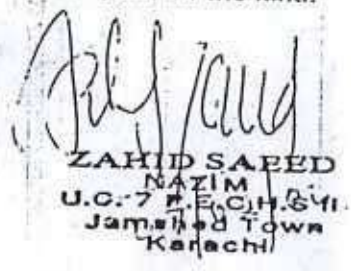 ZAHID SAEED
NAZIM
U.C.-7 P.E.C.H.S-VI
Jamshed Town
Karachi